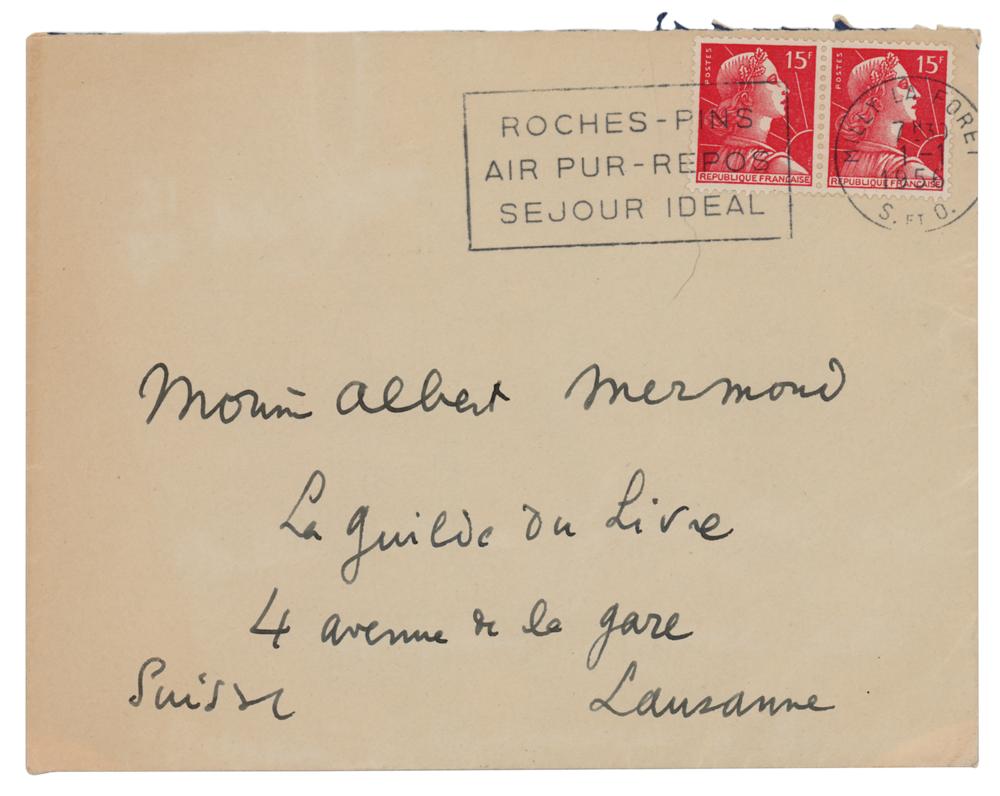 POSTES 15F
POSTES 15F
REPUBLIQUE FRANÇAISE
REPUBLIQUE FRANÇAISE
ROCHES-PINS
AIR PUR-REPOS
SEJOUR IDEAL
MILLY LA FORET
1-1
1956
S. ET O.
Albert Mermoud
La Guilde du Livre
4 avenue de la gare
Suisse Lausanne